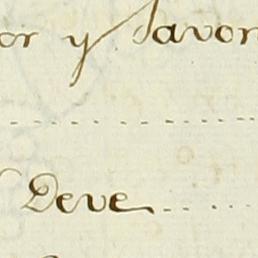 or y favor
Deve